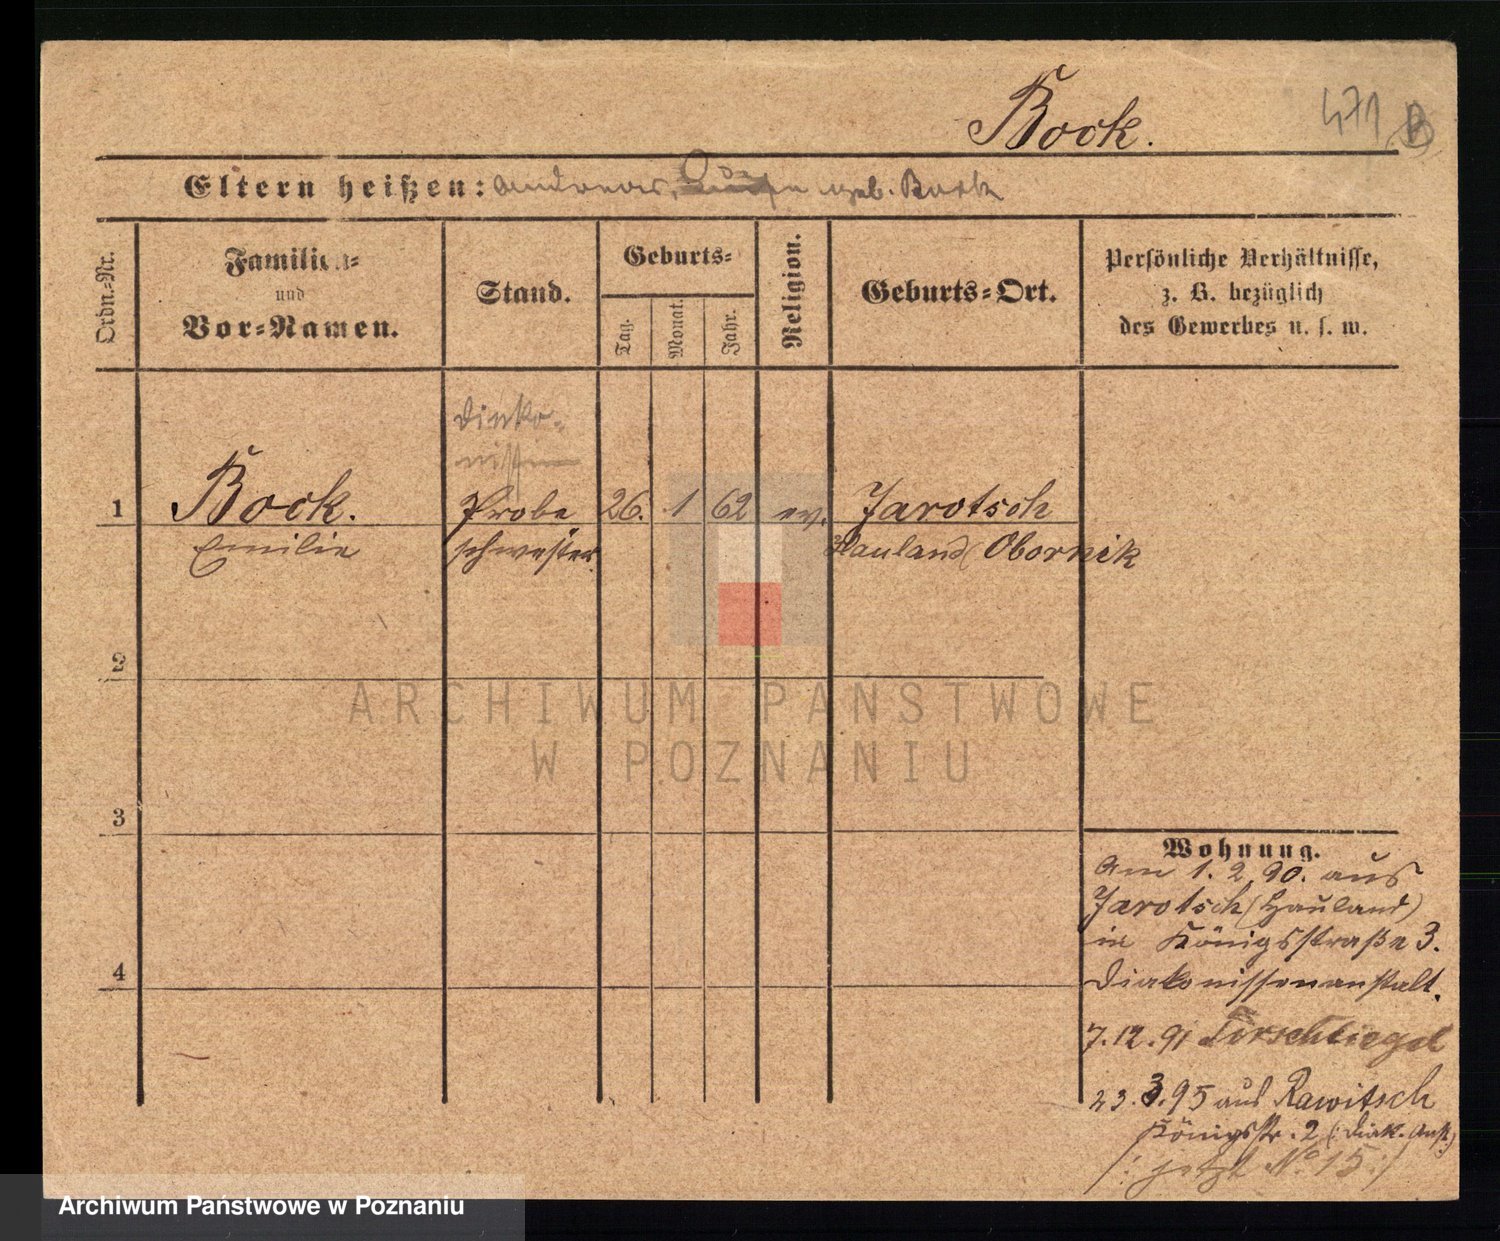 Bock.
471 B
Eltern heißen: Andreas, geb. Bock
Ordn.-Nr.
Familien-
und
Vor-Namen.
Stand.
Geburts-
Tag.
Monat.
Jahr.
Religion.
Geburts-Ort.
Persönliche Verhältnisse,
z. B. bezüglich
des Gewerbes u. s. w.
Diako-
nissin
1 Bock. Probe 26. 1 62 ev. Jarotsch
Emilie schwester Hauland Obornik
2
3
4
Wohnung.
Am 1. 2. 90. aus
Jarotsch (Hauland)
in Königsstraße 3.
Diakonissenanstalt.
7.12.91 Tirschtiegel
23.3.95 aus Rawitsch
Königsstr. 2 (: Diak. Anst.)
/: jetzt No 15 :/
ARCHIWUM PAŃSTWOWE
W POZNANIU
Archiwum Państwowe w Poznaniu